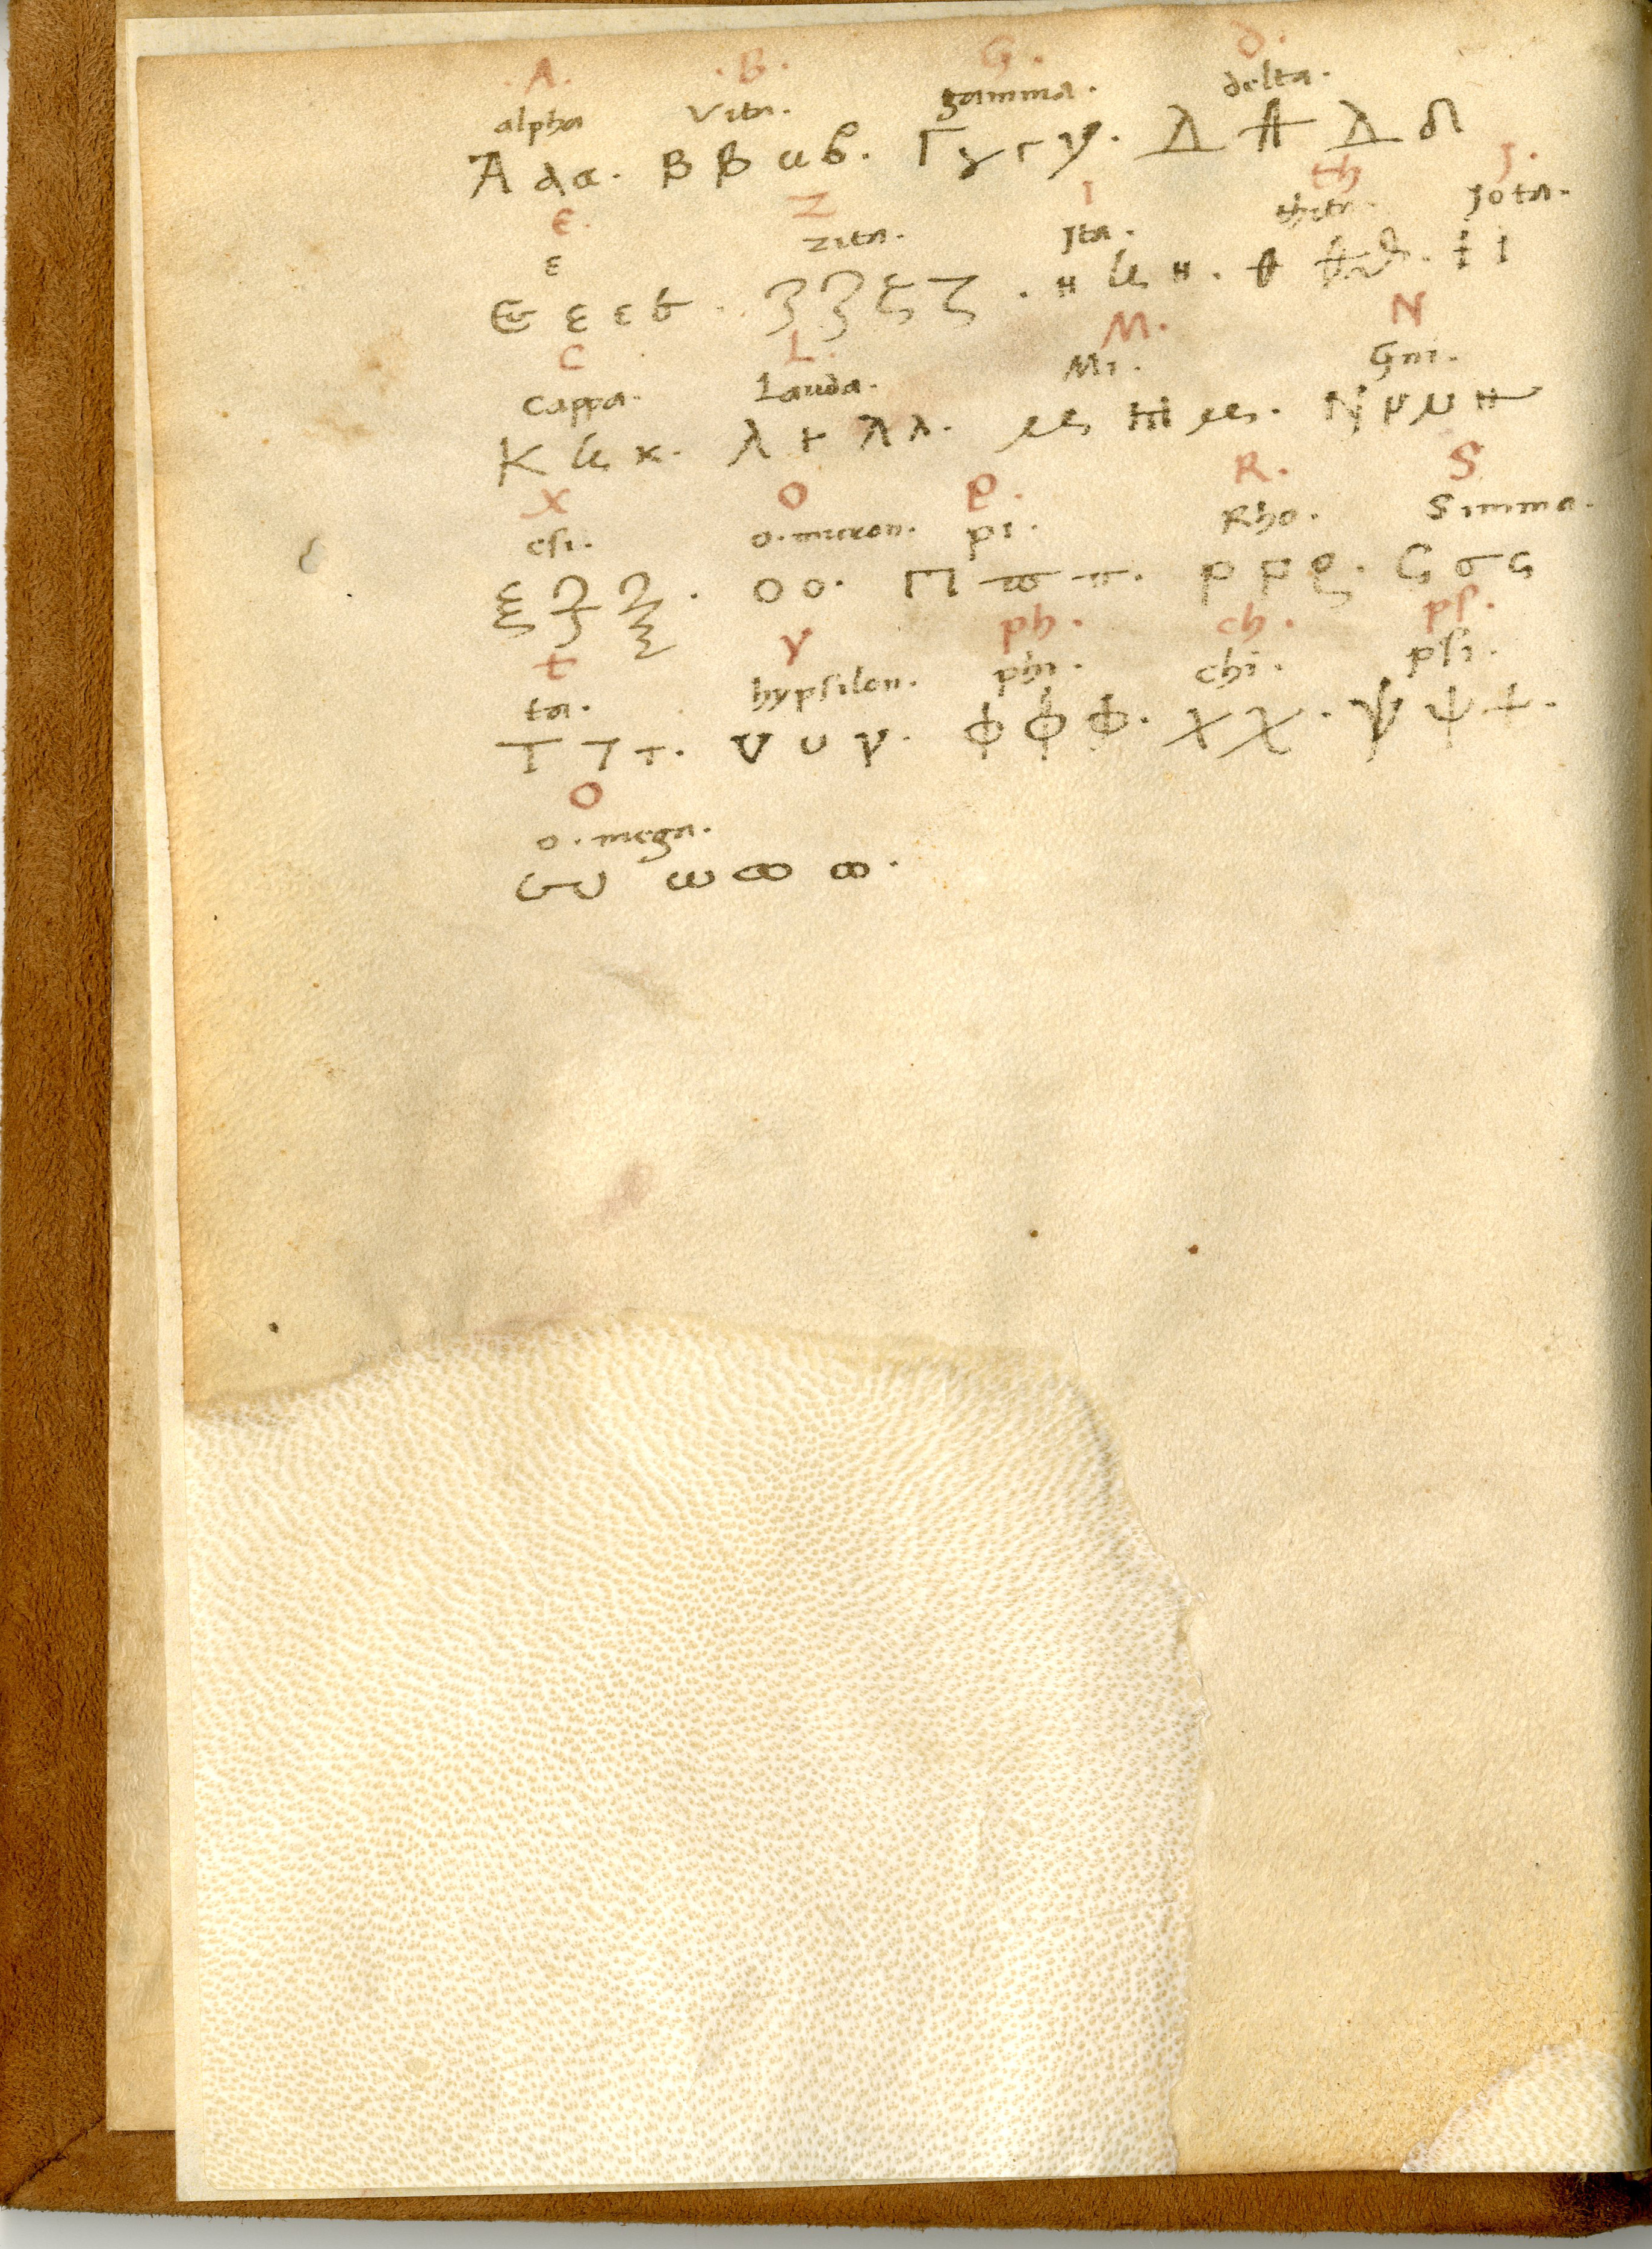 .A. .B. G. d.
alpha Vita. gamma. delta.
A λ α. B β u β. Γ γ г γ. Δ Δ δ
E. Z I th J.
ε zita. Jta. theta. Jota.
Є ε ε ζ ζ ζ ζ. н u н. θ ϑ. ϊ ι
C L. M. N
Cappa. Lauda. Mi. Gni.
K u κ. λ λ λ. μ μ. N ν
X O P. R. S
csi. o.micron. pi. Rho. Simma.
ξ ξ ξ. o o. Π ϖ π. ρ ρ ϱ. C σ ς
t γ ph. ch. pſ.
ta. hypſilon. phi. chi. pſi.
T 7 τ. υ υ γ. ϕ ϕ ϕ. χ χ. ψ ψ +.
O
o.mega.
ω ω ꝏ ꝏ.